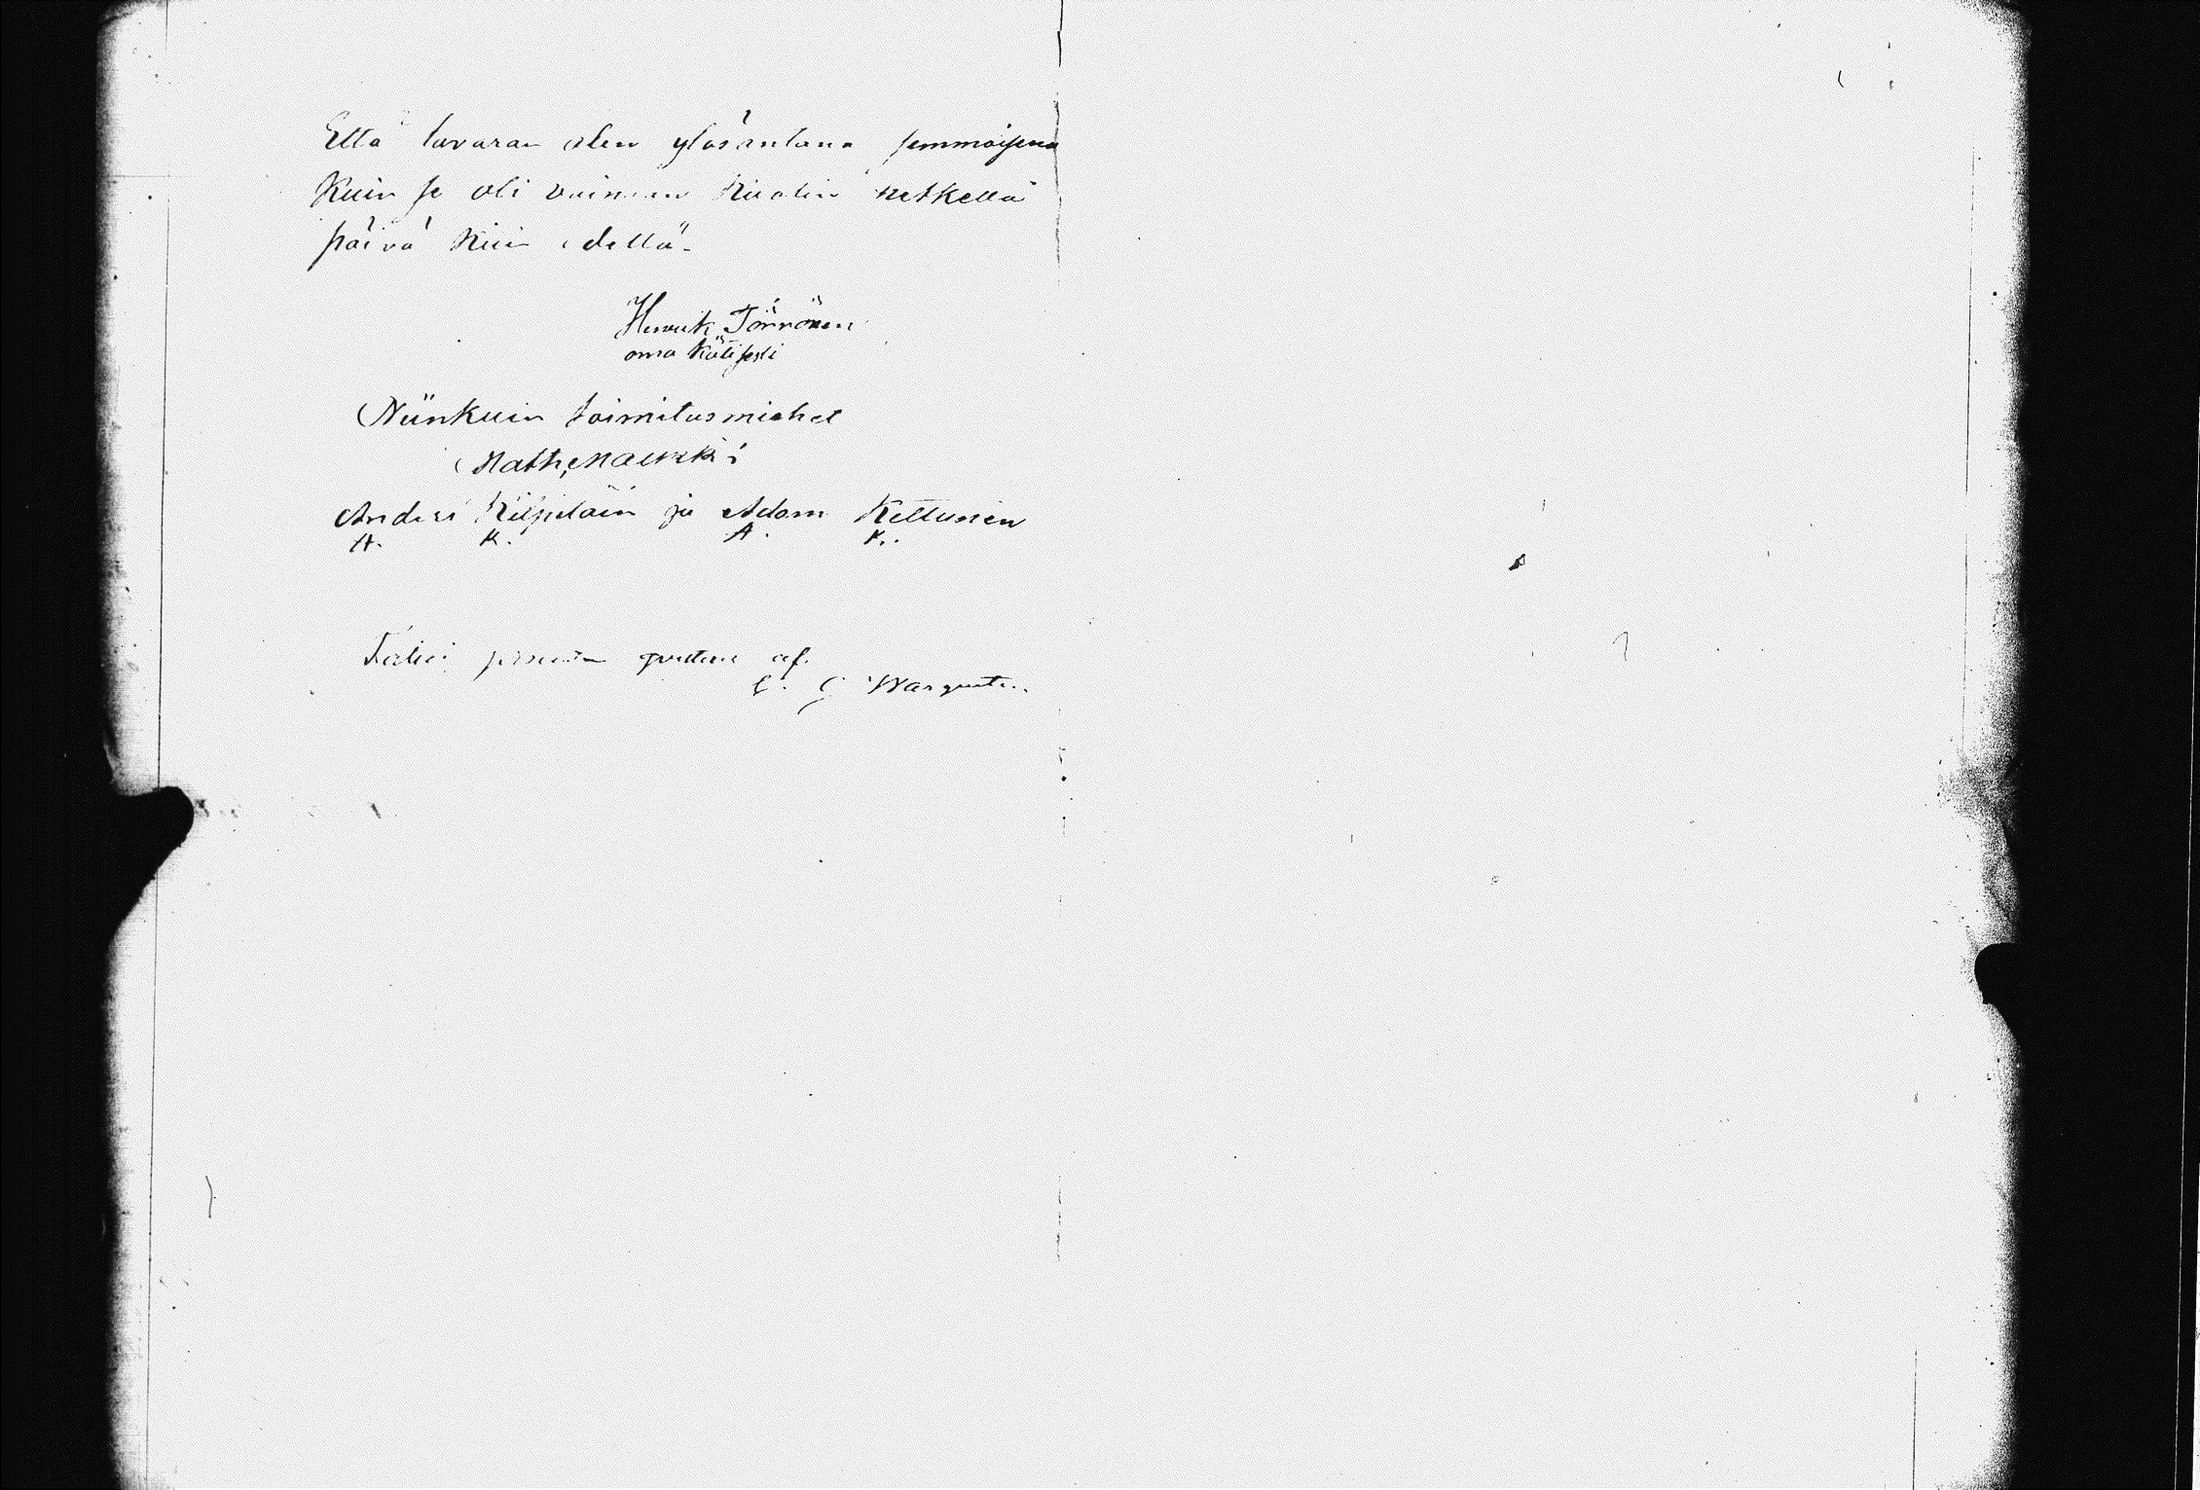 Että tavaran olen ylösantana semmoisena
Kuin se oli vaimon Kuolin hetkellä
päivä Kuin edellä
Henrik Törrönen
oma Kätisesti
Niinkuin toimitusmiehet
Math, Maukki
Anders Kilpiläin ja Adam Kettunen
A. K. A. K.
af.
C. G Wargentin